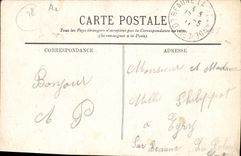 CARTE POSTALE
Tous les pays étrangers n'acceptent pas la Correspondance au recto.
(Se renseigner à la poste)
CORRESPONDANCE
ADRESSE
Bonjour
A P
Monsieur et Madame
Mille Philippot
à
Par Beaune